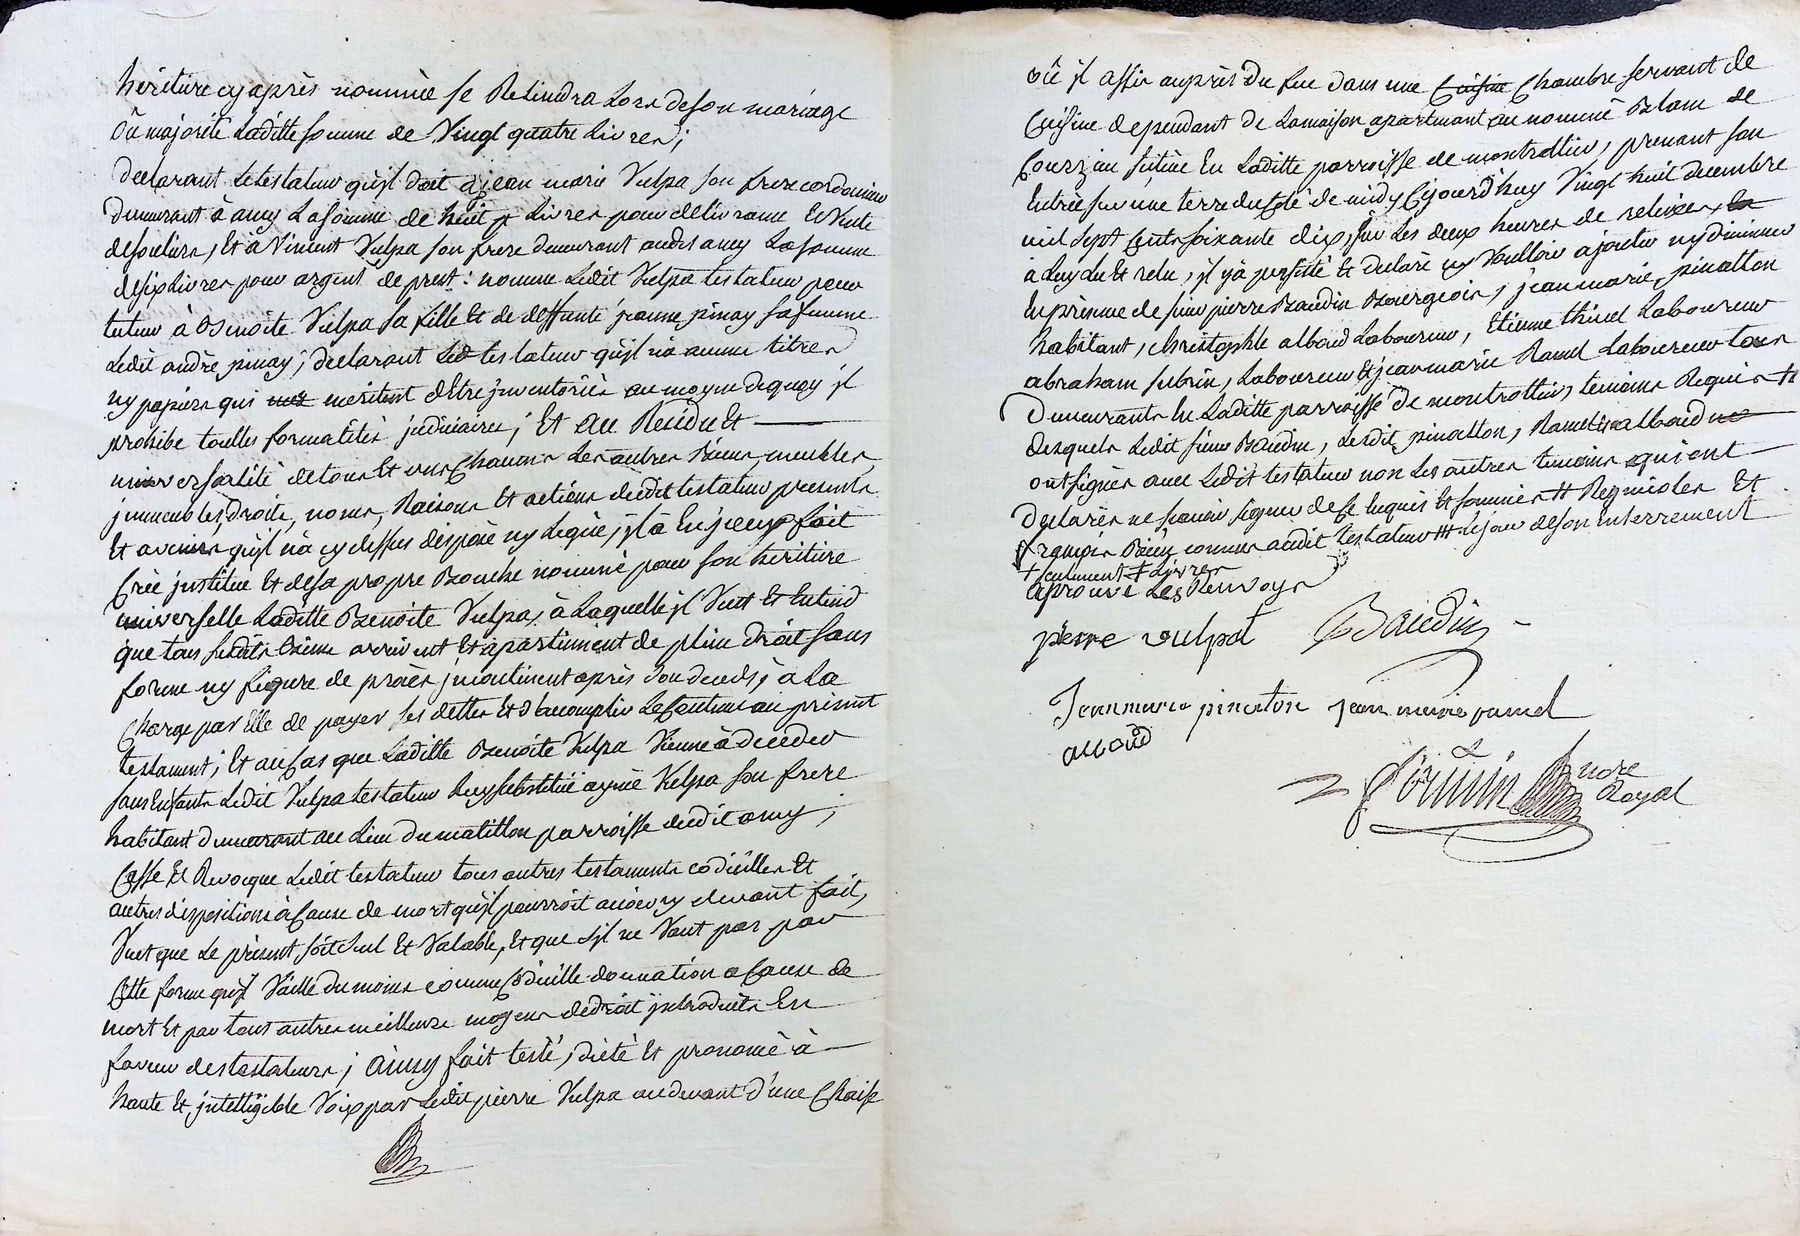 heritiere cy après nommée se Retiendra Lors de son mariage
Ou majorité Laditte somme de Vingt quatre Livres;
declarant Le testateur quÿl doit à jean marie Vulpa son frere cordonnier
demeurant à amy La somme de huit # Livres pour delivrance Et Vente
de souliers, Et à Vincent Vulpa son frere demeurant audit amy La somme
de six Livres pour argent de prest: nomme Ledit Vulpa testateur pour
tuteur à Benoite Vulpa sa fille Et de deffunte jeanne pinay sa femme
Ledit andré pinay; declarant Ledt testateur quÿl n'a aucuns titres
ny papiers qui meritent d'Etre jnventoriés au moyen dequoy jl
prohibe touttes formalités judiciaires; Et au Residu Et
universalité de tous Et uns Chacuns Les autres Biens, meubles,
jmmeubles, droits, noms, Raisons Et actions dudit testateur presents
Et avenirs quÿl n'a cy dessus disposé ny Legué, jl à En jceux fait
Créé jnstitué Et de sa propre Bouche nommé pour son heritiere
universelle Laditte Benoite Vulpa, à Laquelle jl Veut Et Entend
que tous sesdits biens arrivent Et apartiennent de plein droit sans
forme ny figure de procès jncontinent après son decès; à La
Charge par Elle de payer ses dettes Et d'accomplir Le Contenu au present
testament; Et au Cas que Laditte Benoite Vulpa Vienne à deceder
sans Enfants Ledit Vulpa testateur Luy substitüe aymé Vulpa son frere
habitant demeurant au Lieu du matillon parroisse dudit amy;
Casse Et Revocque Ledit testateur tous autres testaments codicilles Et
autres dispositions à Cause de mort quÿl pourroit avoir cy devant fait,
Veut que Le présent soit seul Et Valable, Et que s'jl ne Vaut pas par
Cette forme quÿl Vaille du moins comme Codicille donnation a Cause de
mort Et par tous autres meilleurs moyens de droit jntroduits En
faveur des testateurs; ainsy fait testé, dicté Et prononcé à
haute Et jntelligible Voix par Ledit pierre Vulpa au devant d'une Chaise
où jl assis auprès du feu dans une Cuisine Chambre servant de
Cuisine dependant de La maison apartenant au nommé Blanc de
Courzieu située En Laditte parroisse de montrottier, prenant son
Entrée sur une terre du côté de midy Cejourd'huy Vingt huit decembre
mil sept Cents soixante dix, sur Les deux heures de relevée,
à Luy Lu Et relu, jl y à persisté Et declaré ny Voulloir ajouter ny diminuer
En presence de sieur pierre Baudin Bourgeois, jean marie pinatton
habitant, christophle alboud Laboureur, Etienne thivel Laboureur
abraham subrin, Laboureur & jean marie Ramel Laboureur tous
demeurants En Laditte parroisse de montrottier, temoins Requis #
desquels Ledit sieur Baudin, Lesdit pinatton, Ramel & alboud
ont signés avec Ledit testateur non Les autres temoins qui ont
declarés ne sçavoir signer de ce Enquis Et sommés # Regnicoles Et
françois Bien connus audit testateur ### Le jour de son Enterrement
+ seulement ‡ Livres
aprouvé Les Renvoys
pierre vulpat Baudin
Jean marie pinaton jean marie ramel
alboud
nore
Royal